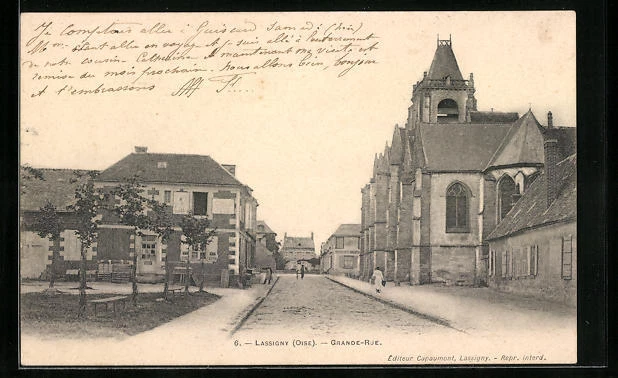 Je comptais aller à Guiscard Samedi (hier)
M. étant allé en voyage et je suis allé à l'enterrement
de notre cousin Catherine et maintenant ma visite est
remise au mois prochain. Nous allons bien, bonjour
et t'embrassons
6. — LASSIGNY (OISE). — GRANDE-RUE.
Éditeur Capaumont, Lassigny. - Repr. interd.